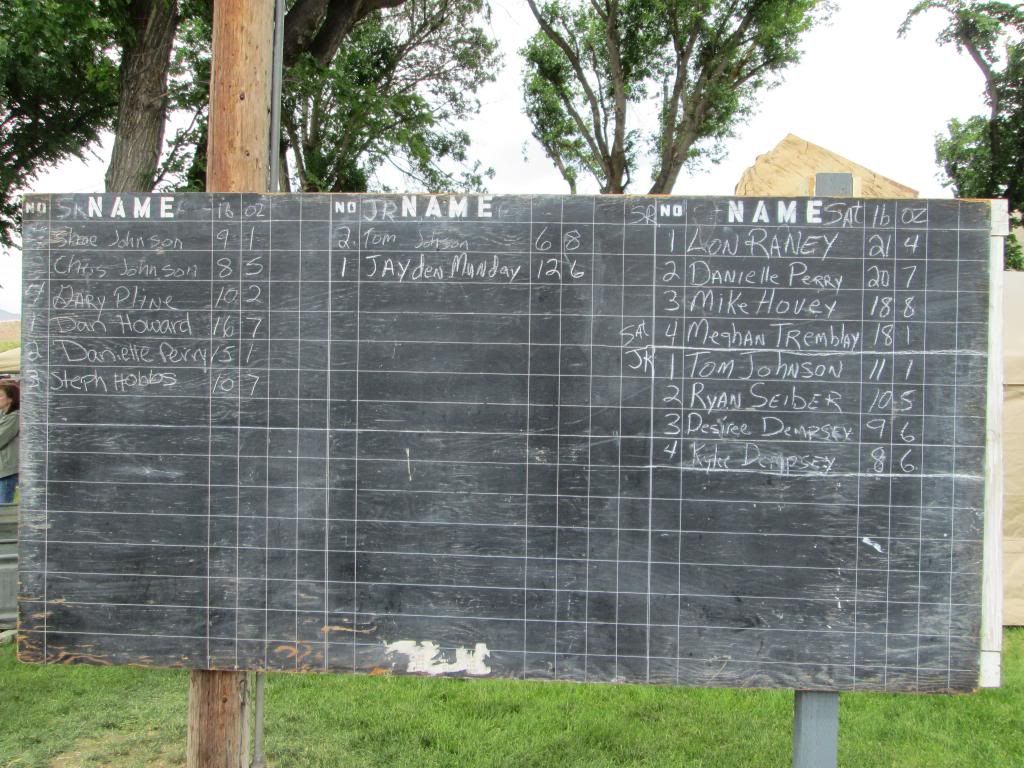 NO SR NAME lb oz
Shae Johnson 9 1
Chris Johnson 8 5
4 Gary Pline 10 2
1 Dan Howard 16 7
2 Danielle Perry 15 1
3 Steph Hobbs 10 7
NO JR NAME
2. Tom Johnson 6 8
1 JAYden Munday 12 6
SR NO NAME SAT lb oz
1 LON RANEY 21 4
2 DANIElle PERRY 20 7
3 Mike Hovey 18 8
SAt 4 Meghan Tremblay 18 1
JR 1 TOM JOHNSON 11 1
2 RYAN SEIBER 10 5
3 Desiree Dempsey 9 6
4 Kylie Dempsey 8 6